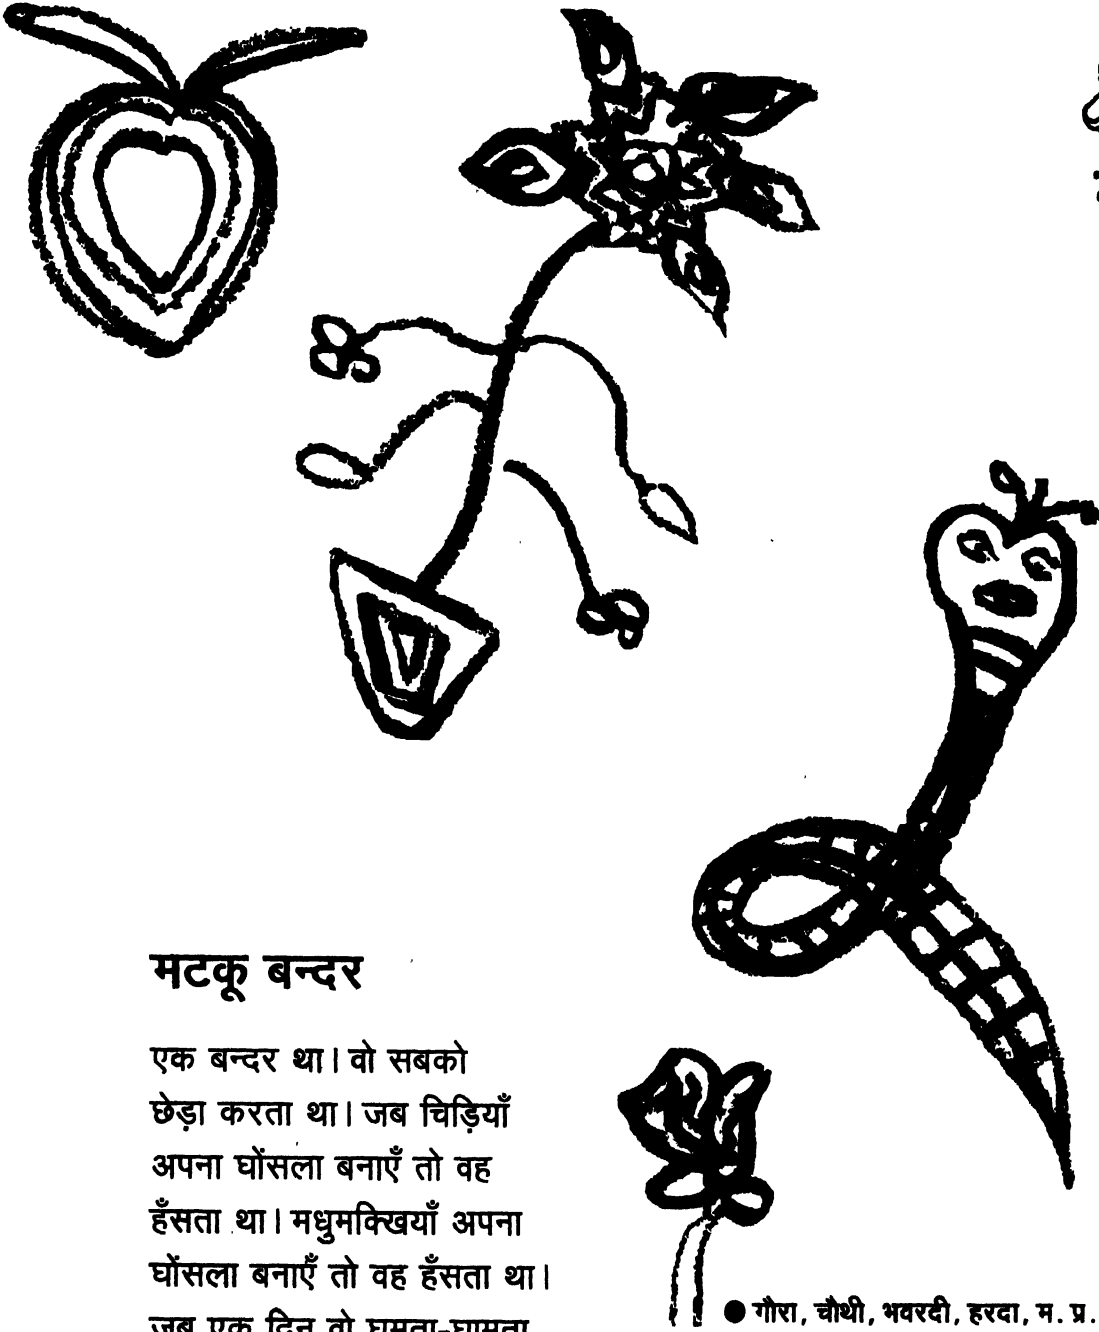 मटकू बन्दर
एक बन्दर था। वो सबको
छेड़ा करता था। जब चिड़ियाँ
अपना घोंसला बनाएँ तो वह
हँसता था। मधुमक्खियाँ अपना
घोंसला बनाएँ तो वह हँसता था।
जब एक दिन वो घूमता-घामता
● गौरा, चौथी, भवरदी, हरदा, म. प्र.